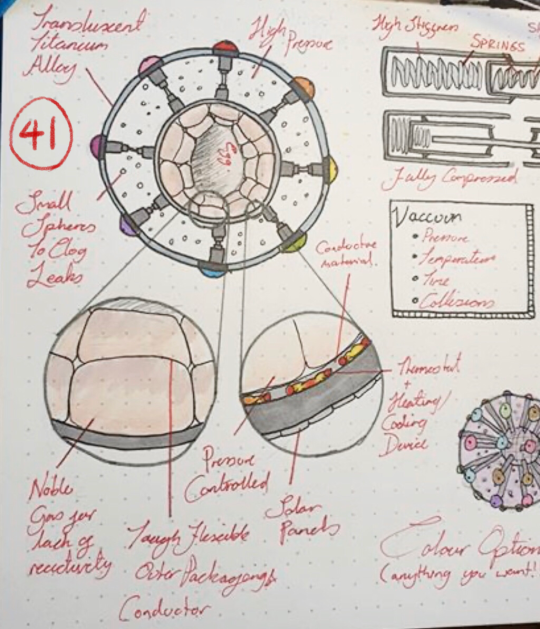 Transluscent
Titanium
Alloy
High
Pressure
High Stiffness
SPRINGS
41
Egg
Fully Compressed
Small
Spheres
To Clog
Leaks
Vaccum
Pressure
Temperature
Time
Collisions
Conductive
material.
Thermostat
+
Heating/
Cooling
Device
Pressure
Controlled
Solar
Panels
Noble
Gas for
lack of
reactivity
Tough Flexible
Outer Packaging
Conductor
Colour Option
(anything you want!